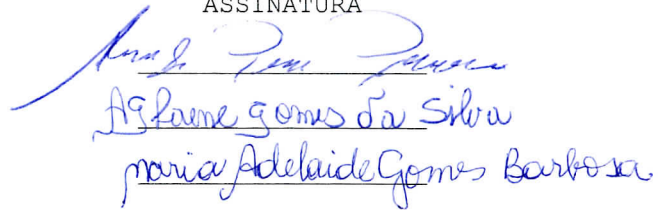 ASSINATURA
Aglaene Gomes da Silva
Maria Adelaide Gomes Barbosa